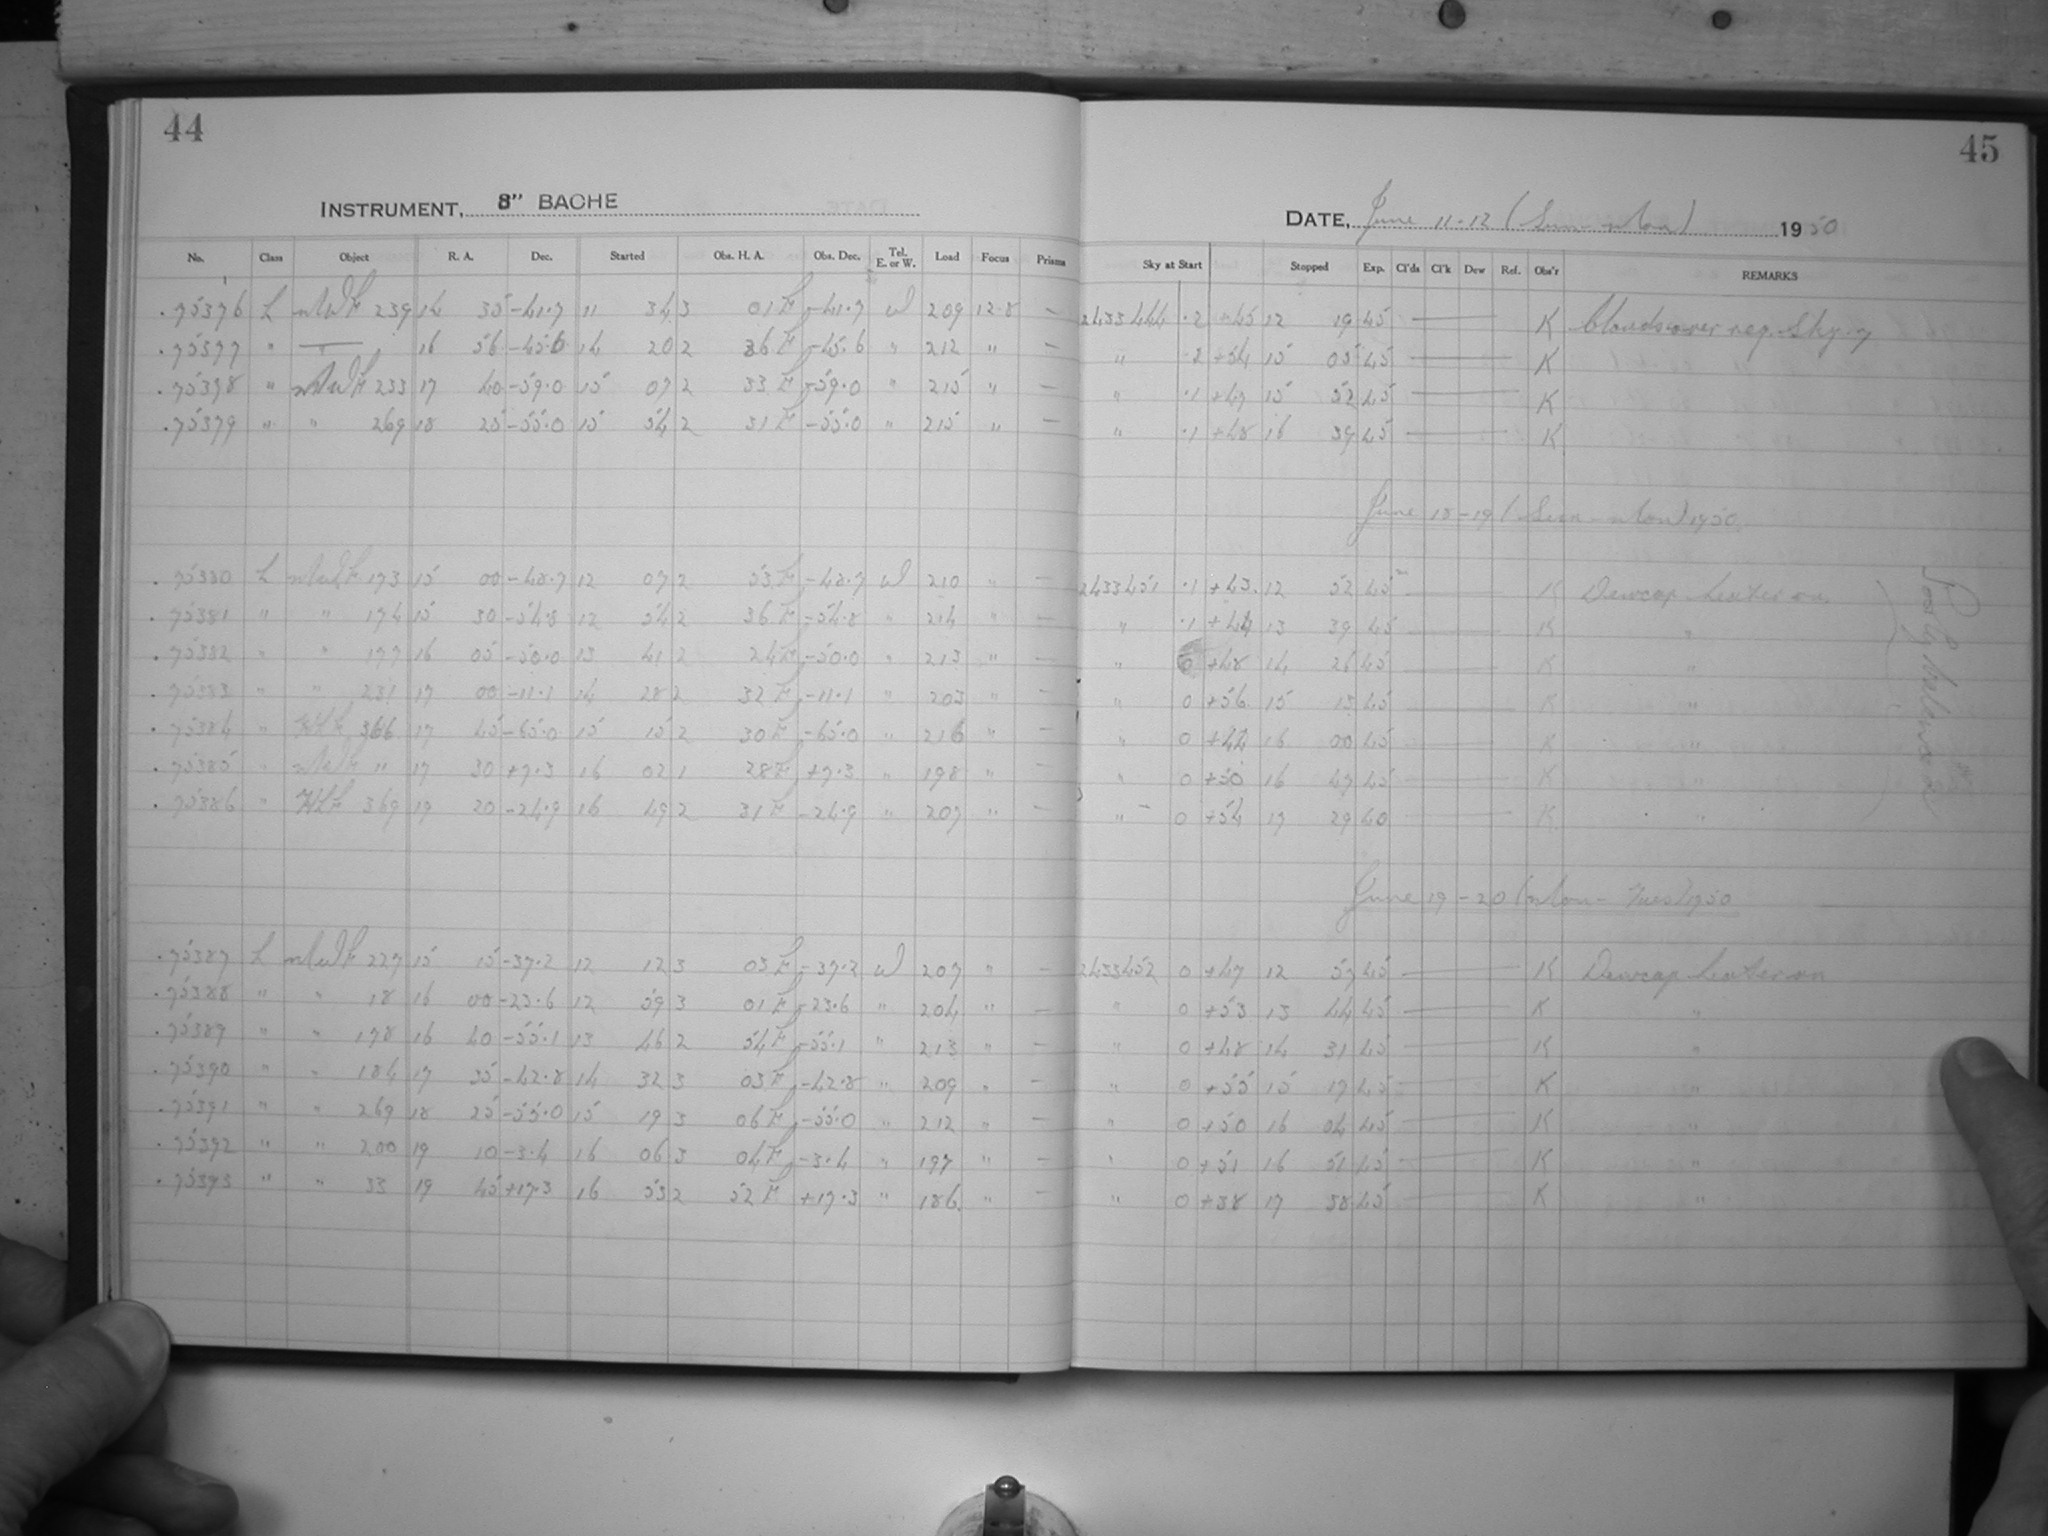 44
45
INSTRUMENT, 8" BACHE
DATE, June 11-12 (Sun-Mon) 1950
No. Class Object R. A. Dec. Started Obs. H. A. Obs. Dec. Tel. E. or W. Load Focus Prisms Sky at Start Stopped Exp. Cl'ds Cl'k Dew Ref. Obs'r REMARKS
.75376 L MWF 239 14 35 -41.7 11 34 3 01 E -41.7 W 209 12.8 — 2433444 .2 +45 12 19 45 — K Clouds over neg. Sky
.75377 " — 16 56 -45.6 14 20 2 36 E -45.6 " 212 " — " .2 +54 15 05 45 — K
.75378 " MWF 233 17 40 -59.0 15 07 2 33 E -59.0 " 215 " — " .1 +47 15 52 45 — K
.75379 " " 269 18 25 -55.0 15 54 2 31 E -55.0 " 215 " — " .1 +48 16 39 45 — K
June 18-19 (Sun-Mon) 1950
.75380 L MWF 173 15 00 -48.7 12 07 2 53 E -48.7 W 210 " — 2433451 .1 +43 12 52 45 — K Dewcap heater on
.75381 " " 174 15 30 -54.8 12 54 2 36 E -54.8 " 214 " — " .1 +44 13 39 45 — K "
.75382 " " 177 16 05 -50.0 13 41 2 24 E -50.0 " 213 " — " 0 +48 14 26 45 — K "
.75383 " " 231 17 00 -11.1 14 28 2 32 E -11.1 " 203 " — " 0 +56 15 13 45 — K "
.75384 " HLF 366 17 45 -65.0 15 15 2 30 E -65.0 " 216 " — " 0 +44 16 00 45 — K "
.75385 " MWF " 17 30 +7.3 16 02 1 28 E +7.3 " 198 " — " 0 +50 16 47 45 — K "
.75386 " HLF 369 19 20 -24.9 16 49 2 31 E -24.9 " 207 " — " 0 +54 17 29 40 K "
June 19-20 (Mon-Tues) 1950
.75387 L MWF 227 15 15 -37.2 12 12 3 03 E -37.2 W 207 " — 2433452 0 +47 12 57 45 — K Dewcap heater on
.75388 " " 18 16 00 -23.6 12 59 3 01 E -23.6 " 204 " — " 0 +53 13 44 45 — K "
.75389 " " 178 16 40 -55.1 13 46 2 54 E -55.1 " 213 " — " 0 +48 14 31 45 — K "
.75390 " " 184 17 35 -42.8 14 32 3 03 E -42.8 " 209 " — " 0 +55 15 17 45 — K "
.75391 " " 269 18 25 -55.0 15 19 3 06 E -55.0 " 212 " — " 0 +50 16 04 45 — K "
.75392 " " 200 19 10 -3.4 16 06 3 04 E -3.4 " 197 " — " 0 +51 16 51 45 — K "
.75393 " " 33 19 45 +17.3 16 53 2 52 E +17.3 " 186 " — " 0 +38 17 38 45 — K "